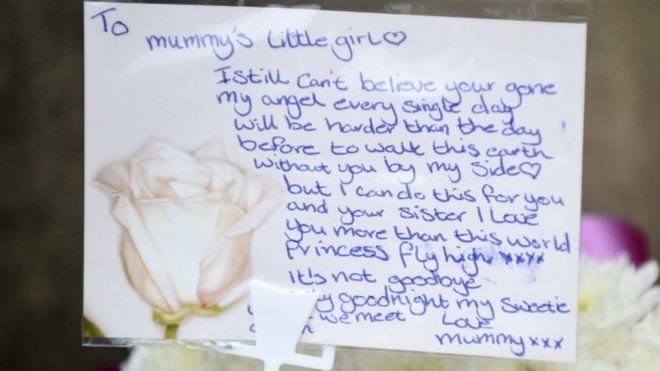 To
mummy's little girl♡
I still can't believe your gone
my angel every single day
will be harder than the day
before to walk this earth
without you by my side♡
but I can do this for you
and your sister I love
you more than this world
Princess fly high xxxx
it's not goodbye
goodnight my sweetie
we meet Love
mummy xxx